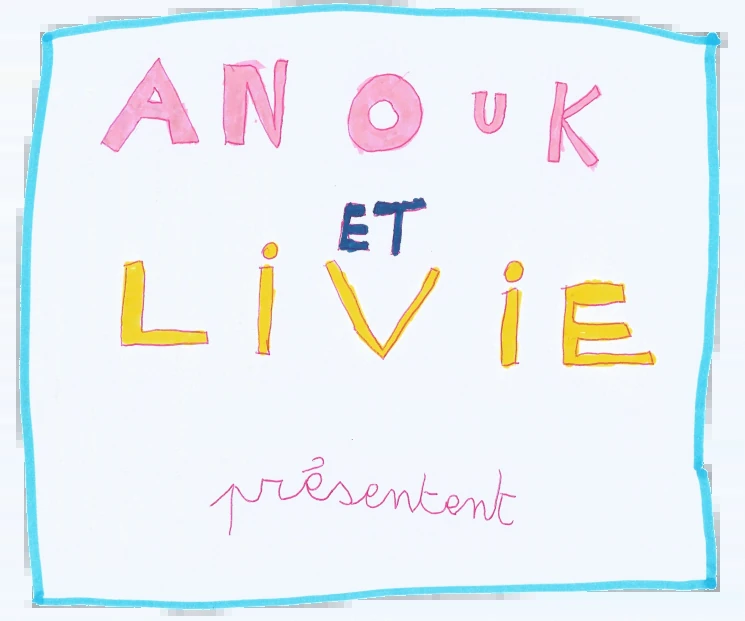 ANOUK
ET
LiViE
présentent